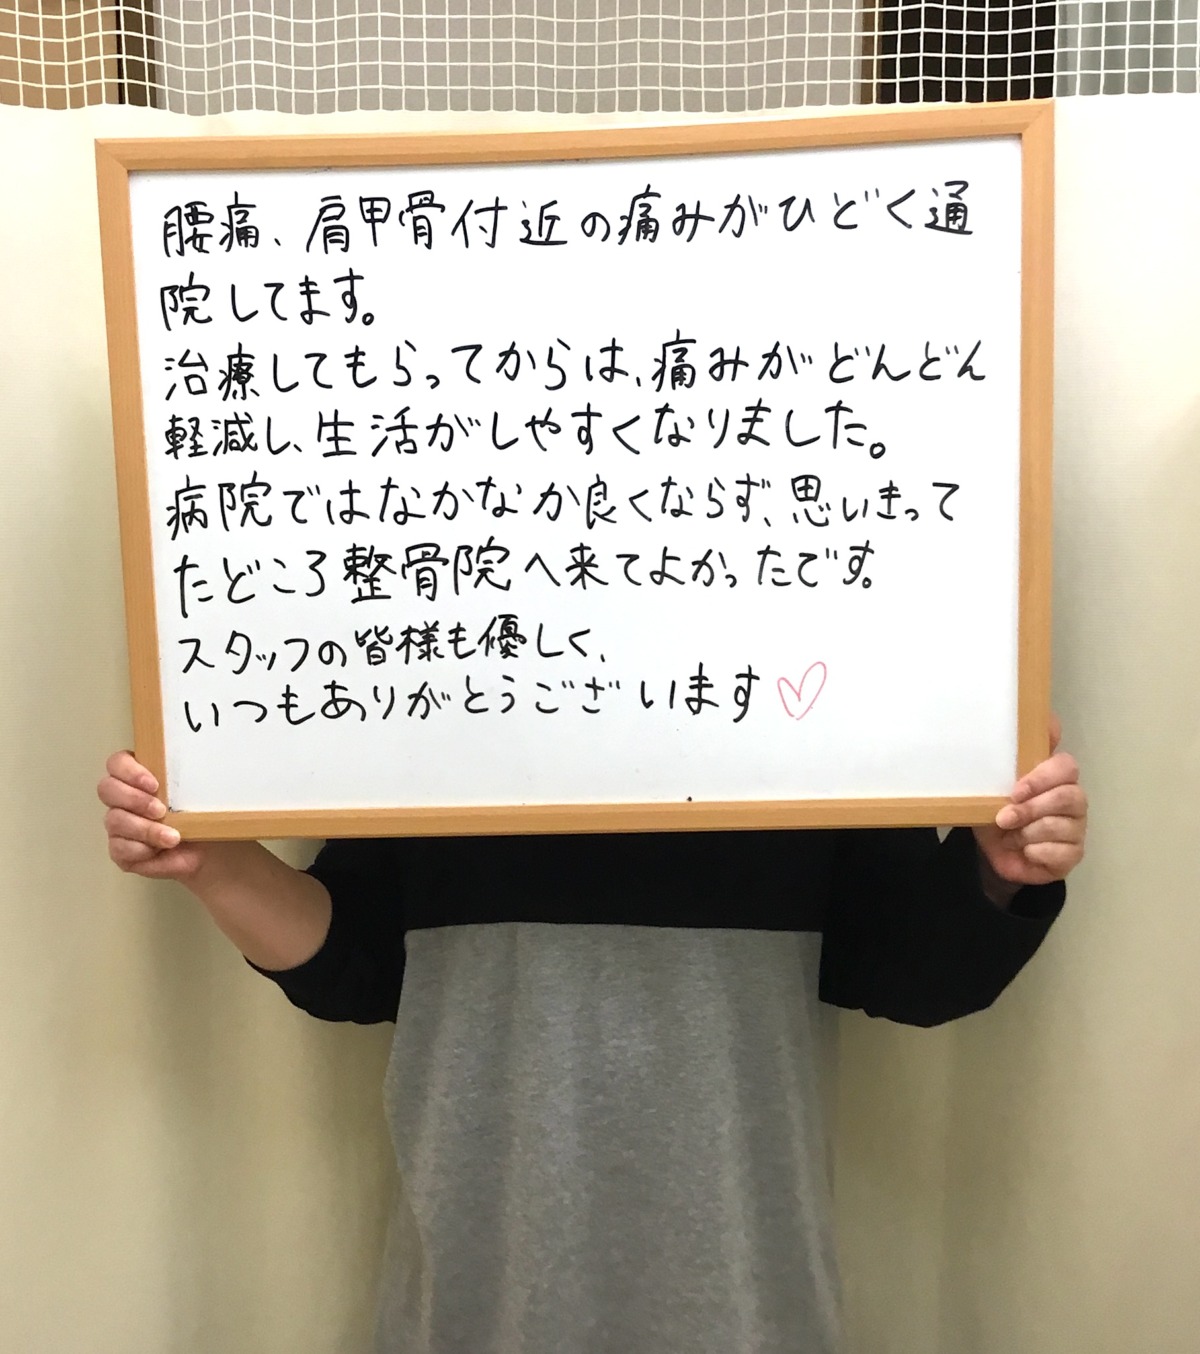 腰痛、肩甲骨付近の痛みがひどく通
院してます。
治療してもらってからは、痛みがどんどん
軽減し、生活がしやすくなりました。
病院ではなかなか良くならず、思いきって
たどころ整骨院へ来てよかったです。
スタッフの皆様も優しく、
いつもありがとうございます♡